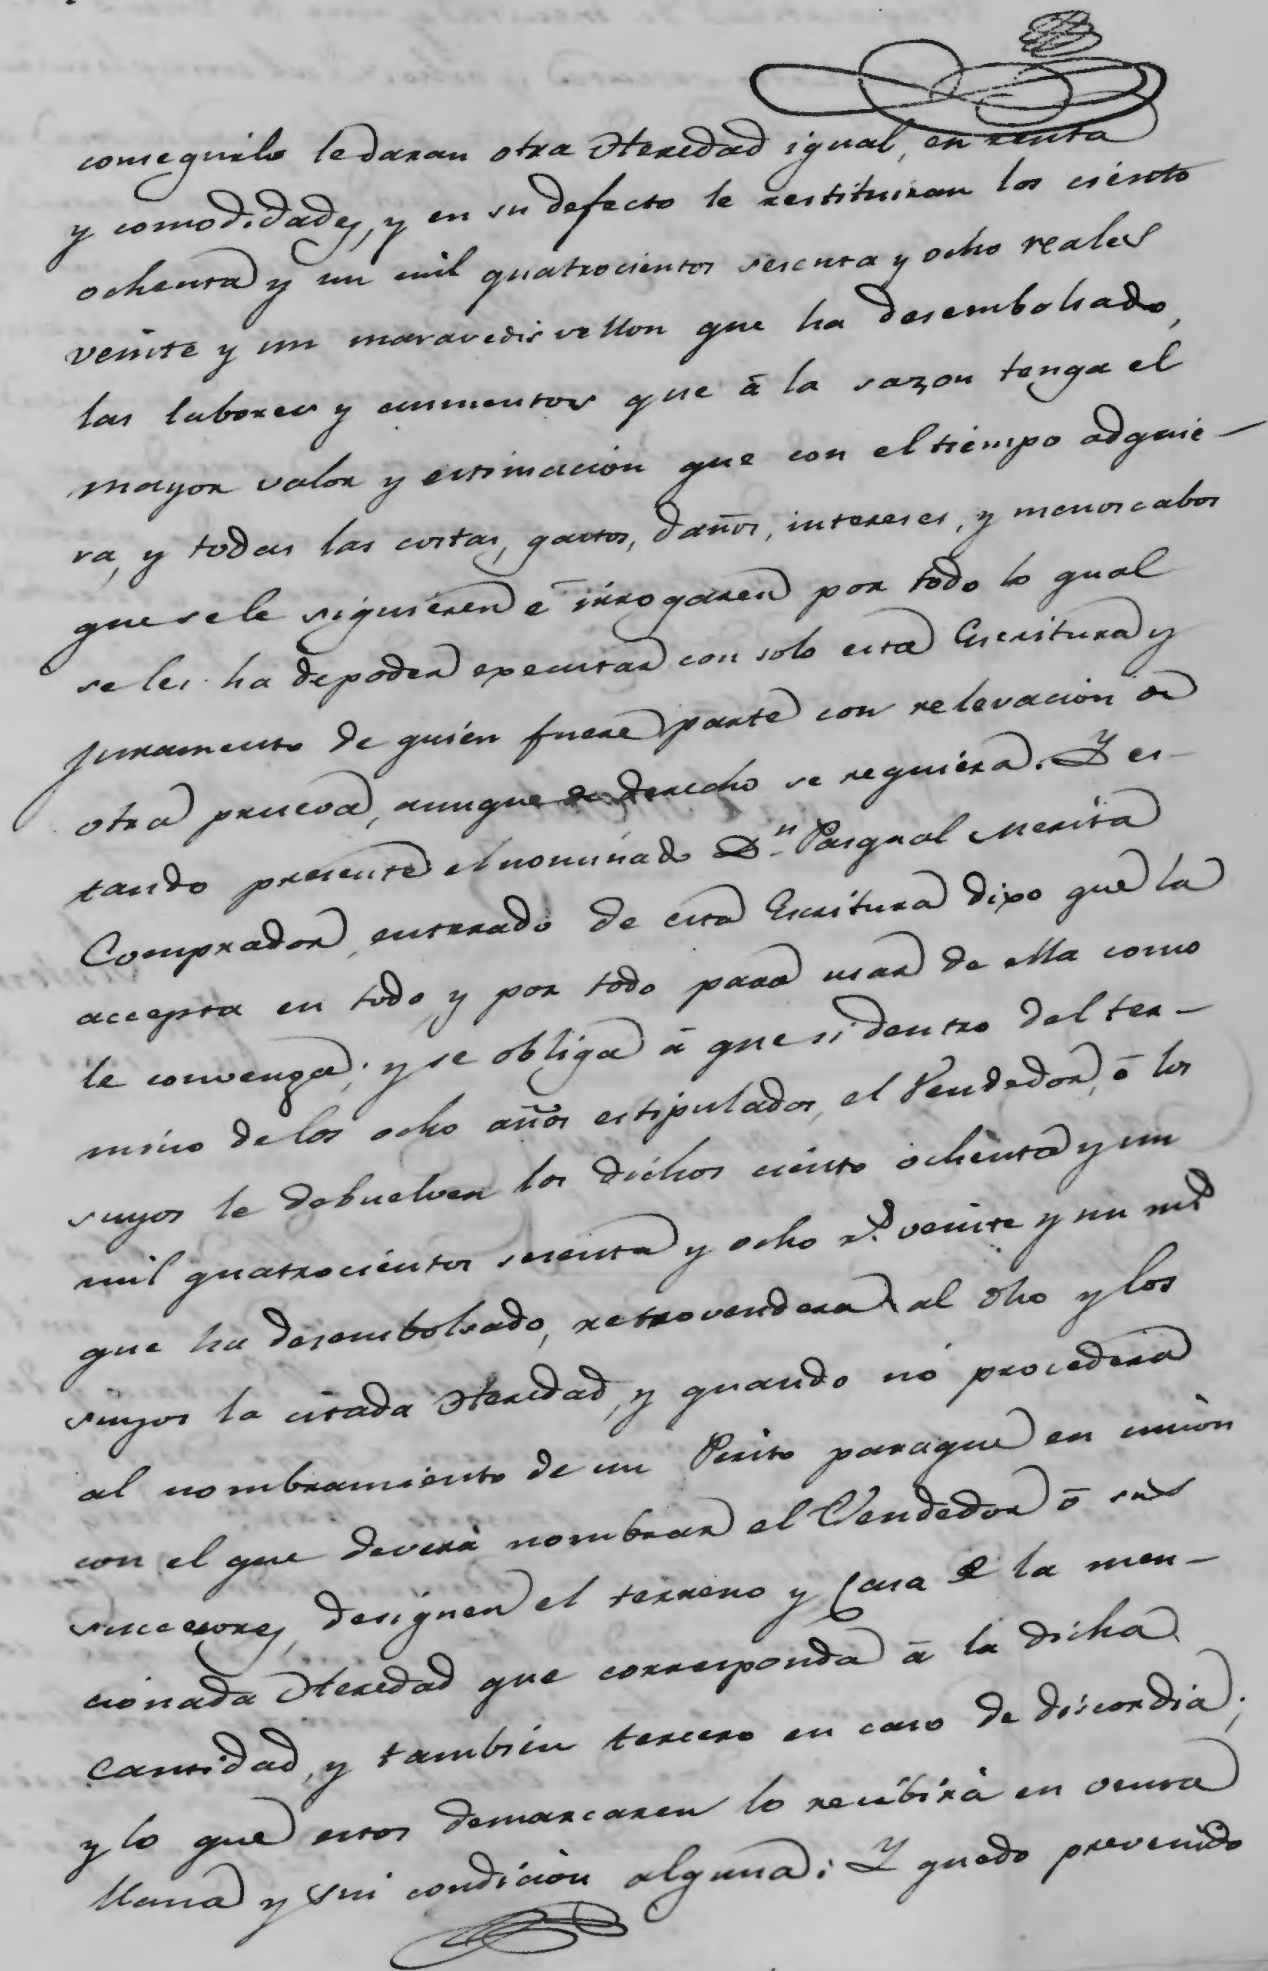 conseguirlo le daran otra Heredad igual, en renta
y comodidades, y en su defecto le restituiran los ciento
ochenta y un mil quatrocientos sesenta y ocho reales
veinte y un maravedis vellon que ha desembolsado,
las labores y aumentos que á la sazon tenga el
mayor valor y estimacion que con el tiempo adquie-
ra, y todas las costas, gastos, daños, intereses, y menoscabos
que se le siguieren é irrogaren por todo lo qual
se les ha de poder executar con solo esta Escritura y
juramento de quien fuere parte con relevacion de
otra prueva, aunque de derecho se requiera. Y es-
tando presente el nominado Dn. Pasqual Merita
Comprador, enterado de esta Escritura dixo que la
accepta en todo y por todo para usar de ella como
le convenga; y se obliga á que si dentro del ter-
mino de los ocho años estipulados, el Vendedor, ó los
suyos le debuelven los dichos ciento ochenta y un
mil quatrocientos sesenta y ocho rs. veinte y un mrs
que ha desembolsado, retrovenderá al dho y los
suyos la citada Heredad, y quando no procederá
al nombramiento de un Perito paraque en union
con el que deverá nombrar el Vendedor ó sus
succesores, designen el terreno y Casa de la men-
cionada Heredad que corresponda á la dicha
Cantidad, y tambien tercero en caso de discordia;
y lo que estos demarcaren lo recibirá en venta
llana y sin condicion alguna: Y quedo prevenido